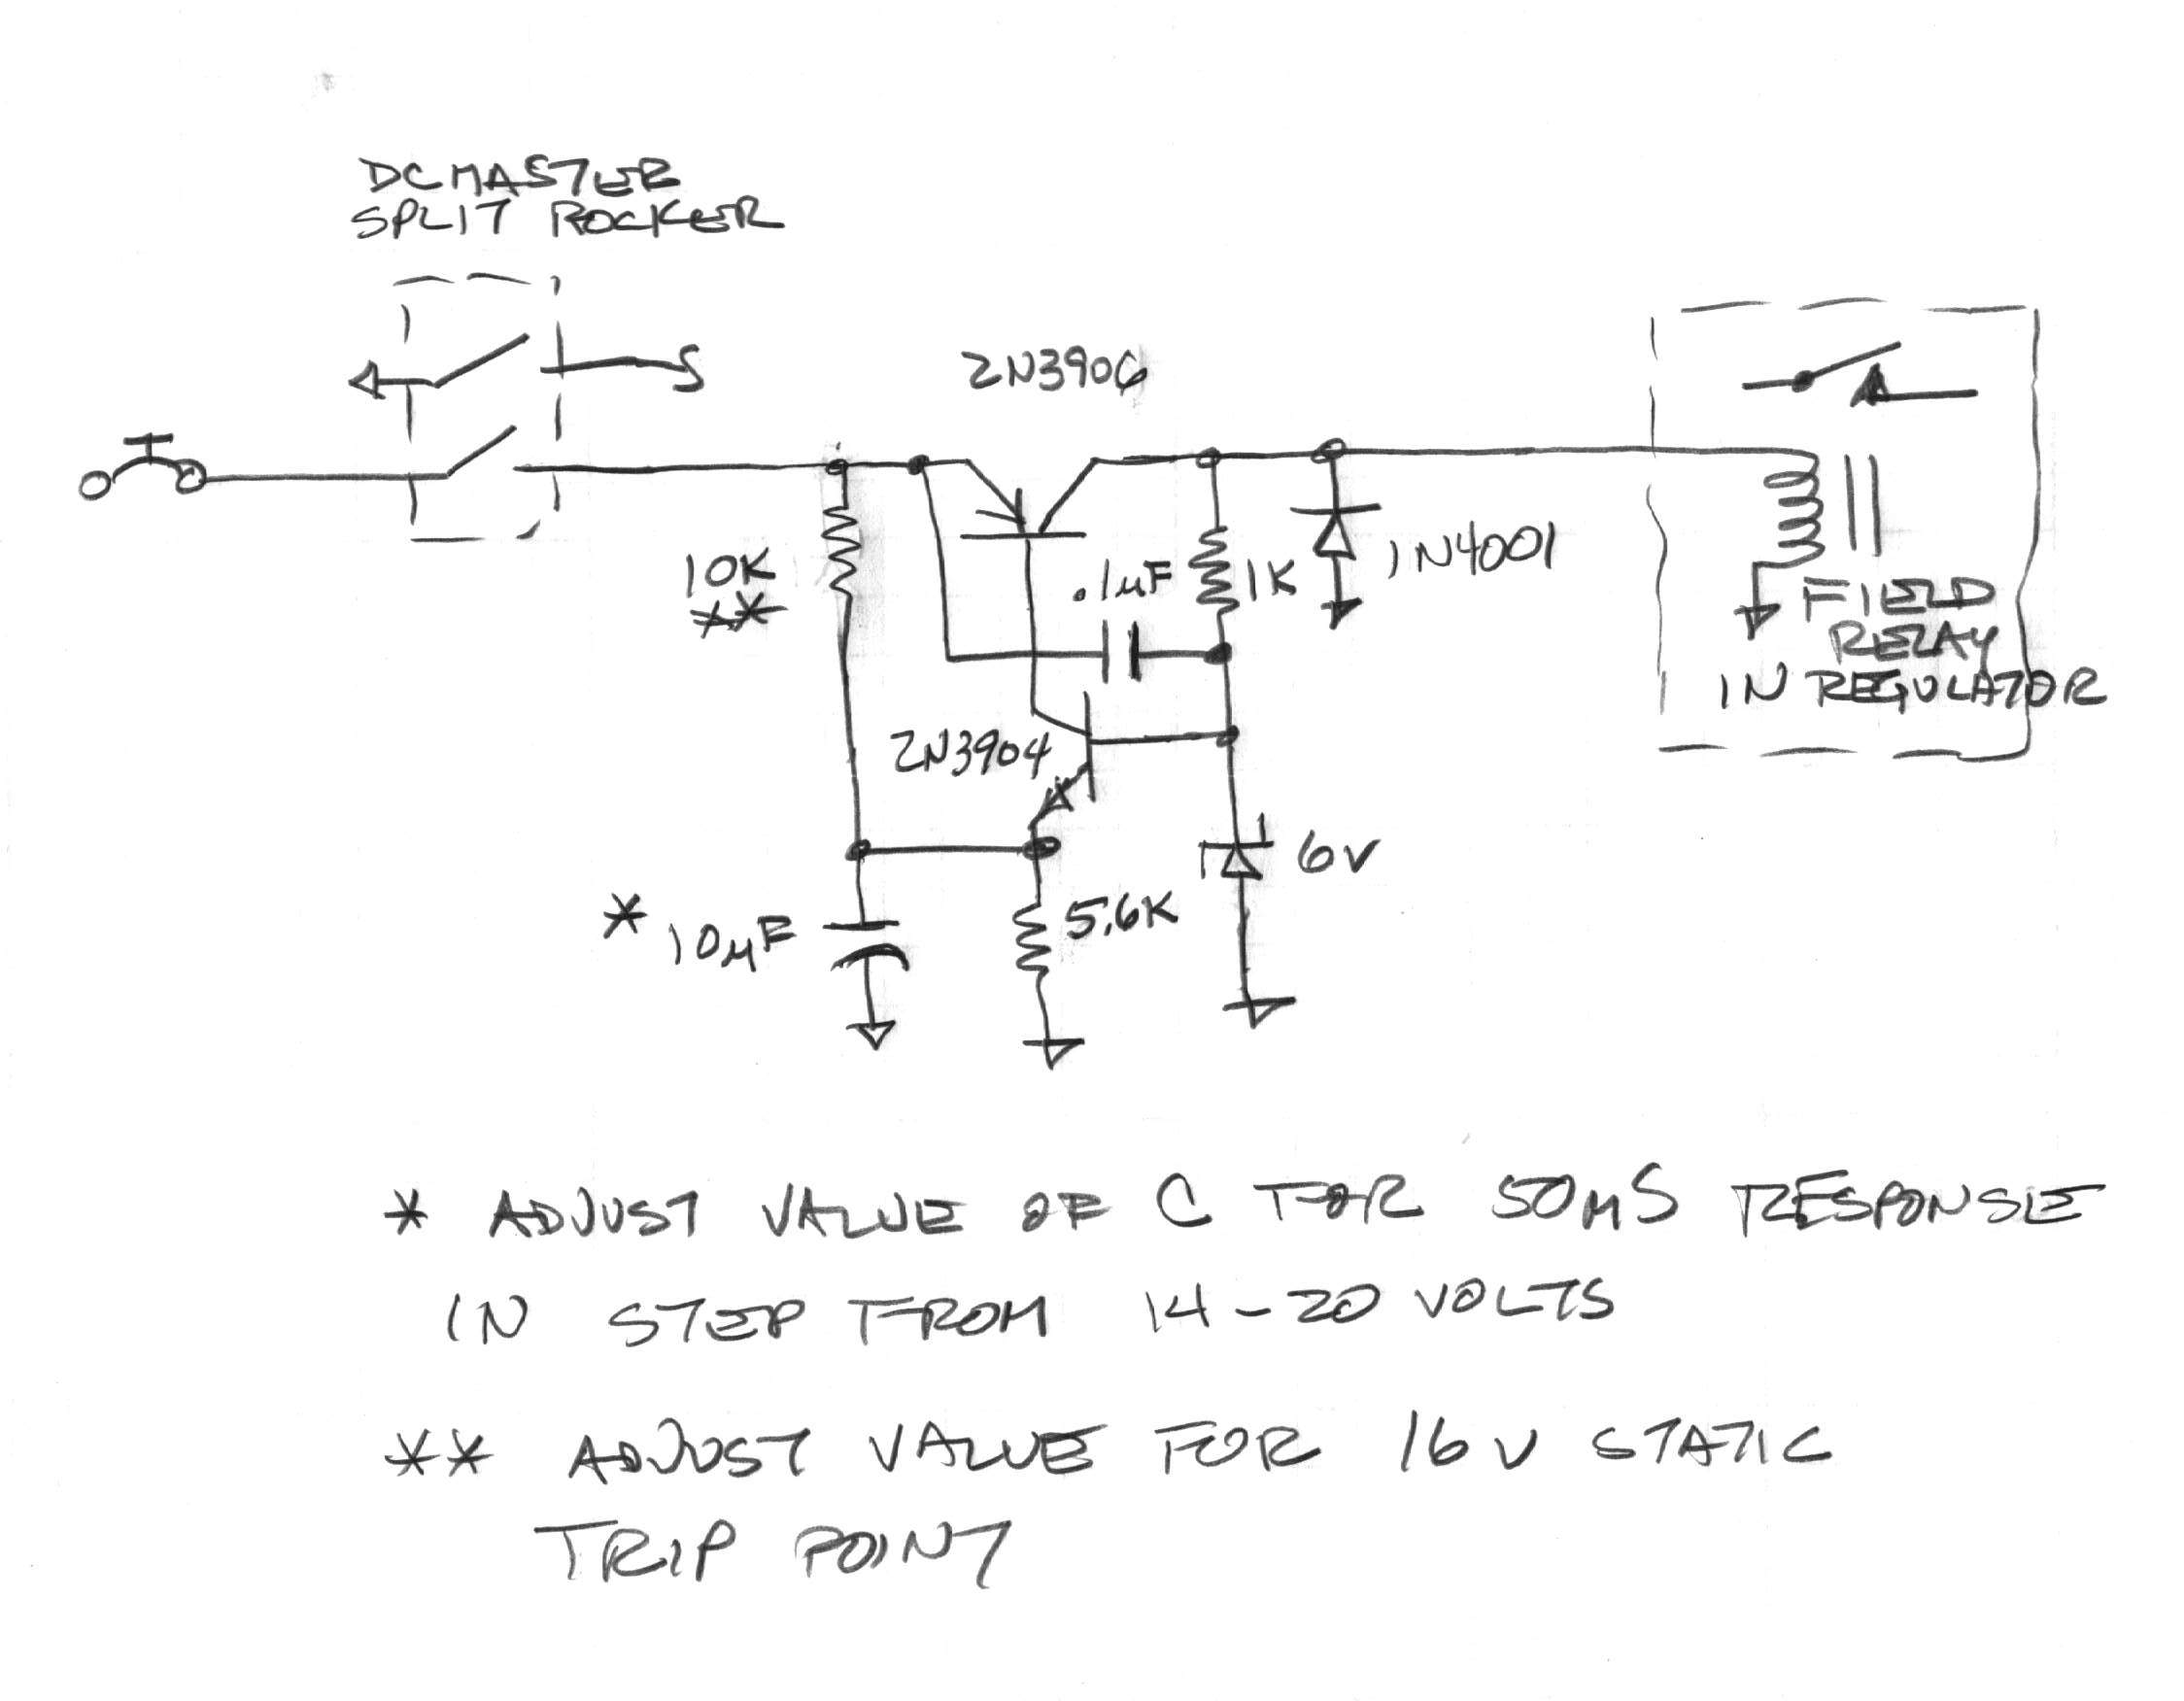 DC MASTER
SPLIT ROCKER
S
2N3906
10K
**
.1µF
1K
1N4001
FIELD
RELAY
IN REGULATOR
2N3904
6V
* 10µF
5.6K
* ADJUST VALUE OF C FOR 50MS RESPONSE
IN STEP FROM 14-20 VOLTS
** ADJUST VALUE FOR 16V STATIC
TRIP POINT